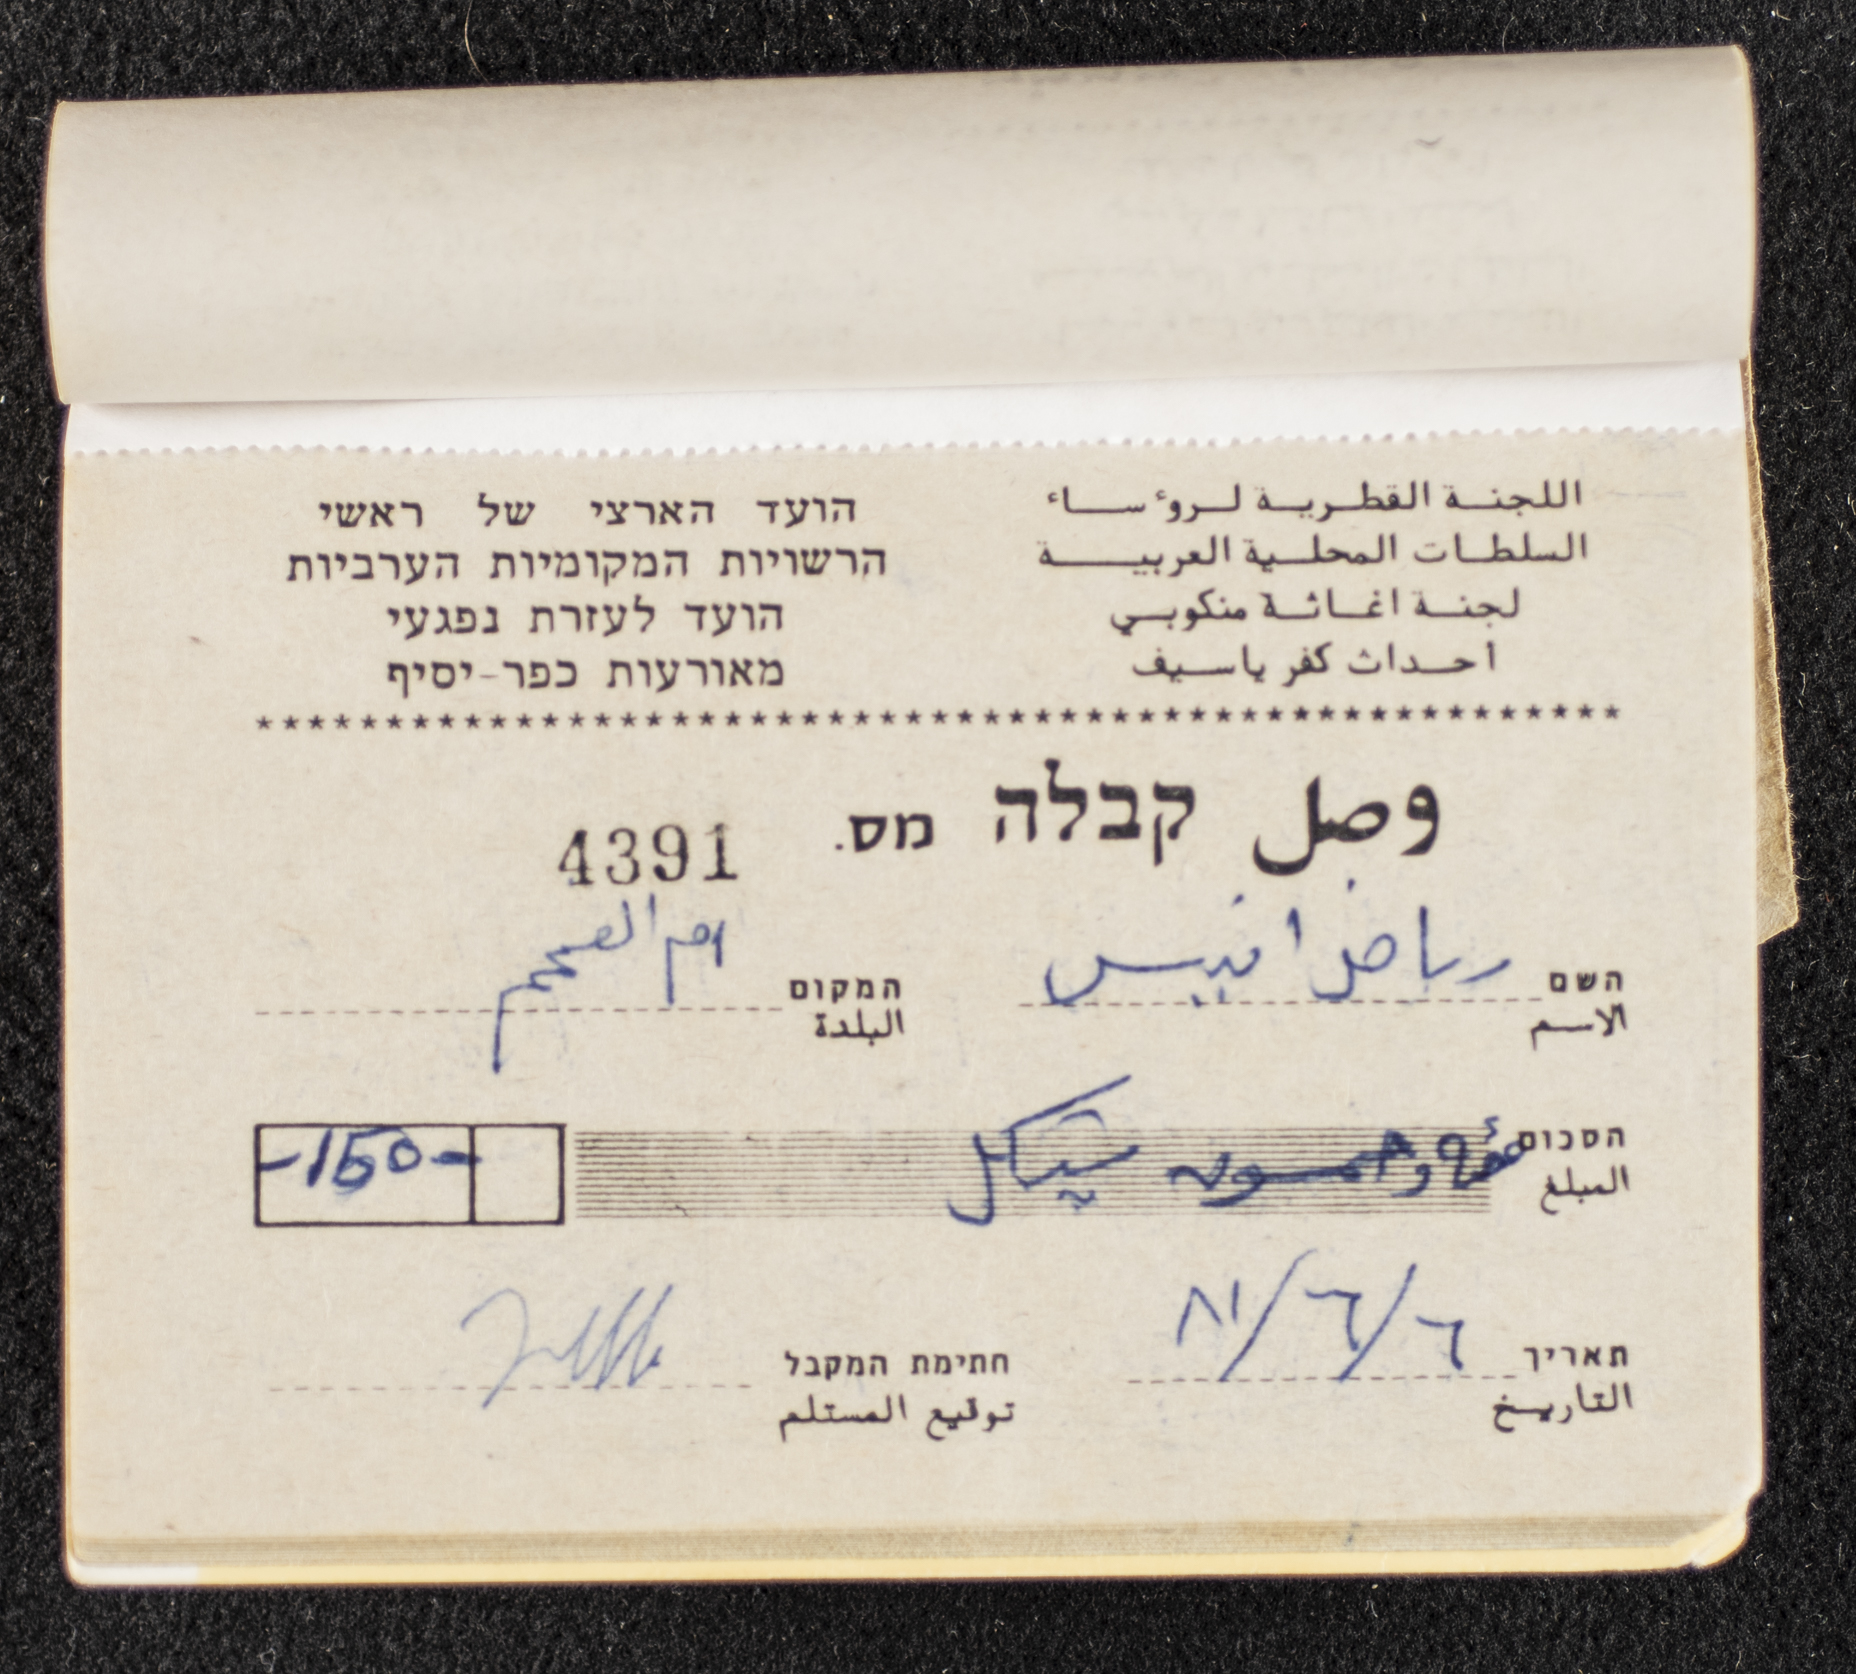 اللجنة القطرية لروءساء
السلطات المحلية العربية
لجنة اغاثة منكوبي
احداث كفر ياسيف
הועד הארצי של ראשי
הרשויות המקומיות הערביות
הועד לעזרת נפגעי
מאורעות כפר-יסיף
****************************************************
وصل קבלה מס. 4391
השם رياض انيس המקום ام الفحم
الاسم البلدة
הסכום مئة وخمسون شيكل -150-
المبلغ
תאריך ٦/٦/٨١ חתימת המקבל
التاريخ توقيع المستلم